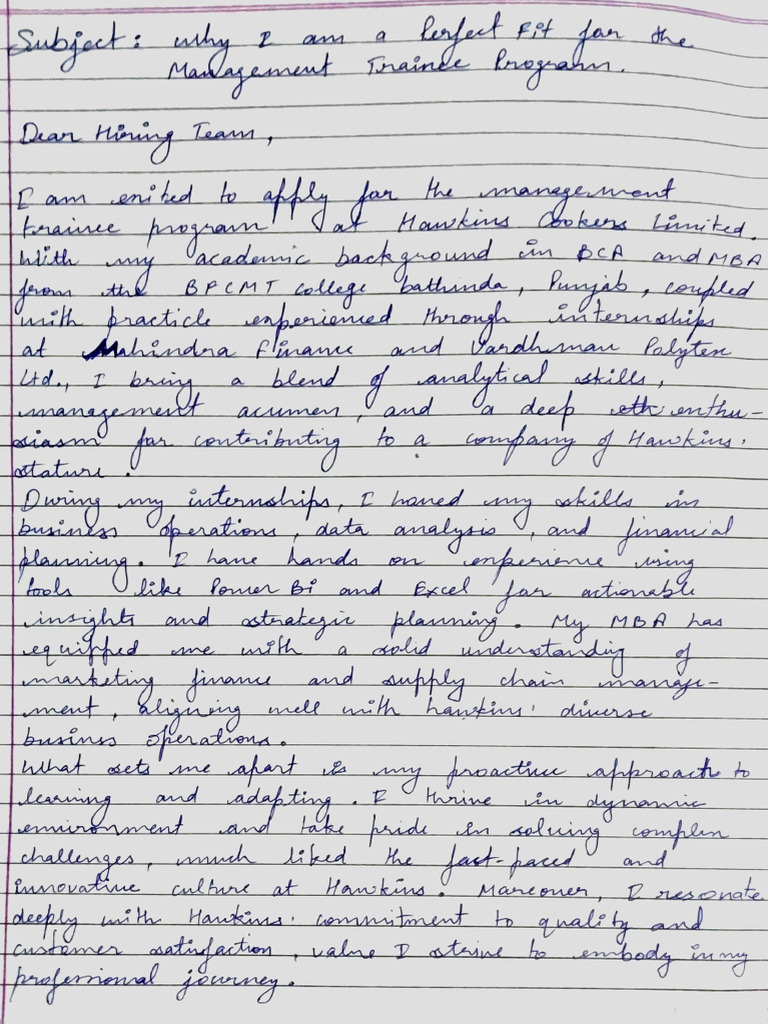 Subject: why I am a Perfect Fit for the
Management Trainee Program.
Dear Hiring Team,
I am exited to apply for the management
trainee program at Hawkins Cookers Limited.
With my academic background in BCA and MBA
from the BFCMT college bathinda, Punjab, coupled
with practicle experienced through internships
at Mahindra Finance and Vardhman Polytex
Ltd., I bring a blend of analytical skills,
management acumen, and a deep enthu-
siasm for contributing to a company of Hawkins'
stature.
During my internships, I honed my skills in
business operations, data analysis, and financial
planning. I have hands on experience using
tools like Power Bi and Excel for actionable
insights and strategic planning. My MBA has
equipped me with a solid understanding of
marketing finance and supply chain manage-
ment, aligning well with hawkins' diverse
business operations.
What sets me apart is my proactive approach to
learning and adapting. I thrive in dynamic
environment and take pride in solving complex
challenges, much liked the fast-paced and
innovative culture at Hawkins. Moreover, I resonate
deeply with Hawkins' commitment to quality and
customer satisfaction, value I strive to embody in my
professional journey.